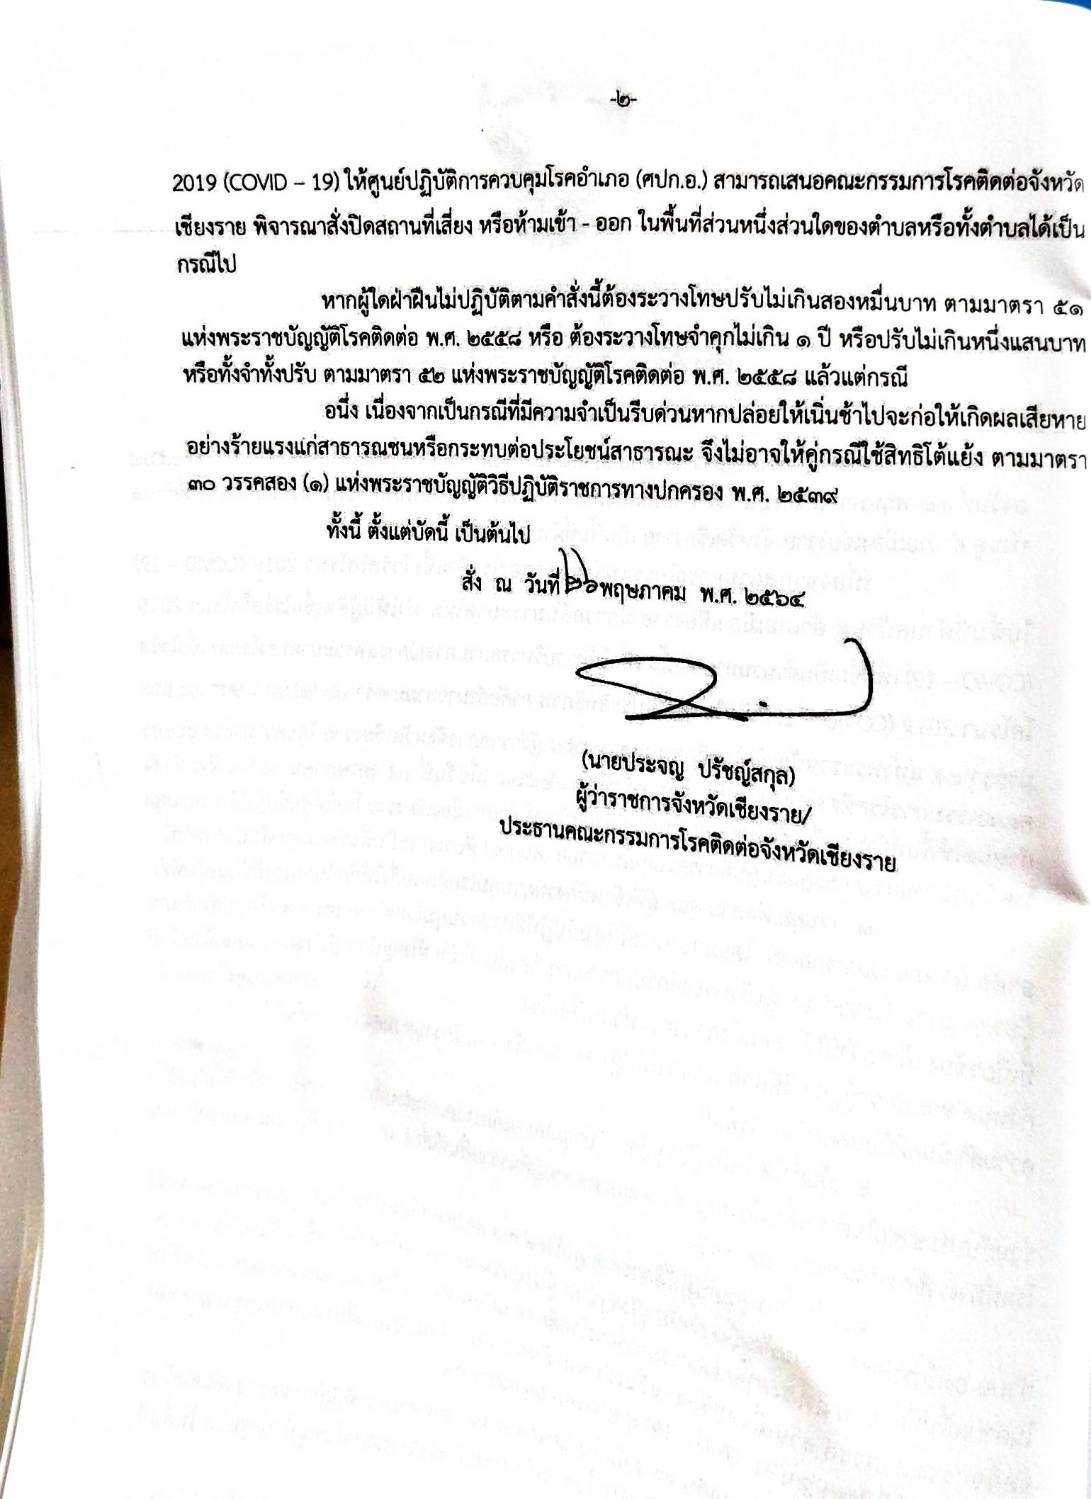 -๒-
2019 (COVID – 19) ให้ศูนย์ปฏิบัติการควบคุมโรคอำเภอ (ศปก.อ.) สามารถเสนอคณะกรรมการโรคติดต่อจังหวัด
เชียงราย พิจารณาสั่งปิดสถานที่เสี่ยง หรือห้ามเข้า - ออก ในพื้นที่ส่วนหนึ่งส่วนใดของตำบลหรือทั้งตำบลได้เป็น
กรณีไป
หากผู้ใดฝ่าฝืนไม่ปฏิบัติตามคำสั่งนี้ต้องระวางโทษปรับไม่เกินสองหมื่นบาท ตามมาตรา ๕๑
แห่งพระราชบัญญัติโรคติดต่อ พ.ศ. ๒๕๕๘ หรือ ต้องระวางโทษจำคุกไม่เกิน ๑ ปี หรือปรับไม่เกินหนึ่งแสนบาท
หรือทั้งจำทั้งปรับ ตามมาตรา ๕๒ แห่งพระราชบัญญัติโรคติดต่อ พ.ศ. ๒๕๕๘ แล้วแต่กรณี
อนึ่ง เนื่องจากเป็นกรณีที่มีความจำเป็นรีบด่วนหากปล่อยให้เนิ่นช้าไปจะก่อให้เกิดผลเสียหาย
อย่างร้ายแรงแก่สาธารณชนหรือกระทบต่อประโยชน์สาธารณะ จึงไม่อาจให้คู่กรณีใช้สิทธิโต้แย้ง ตามมาตรา
๓๐ วรรคสอง (๑) แห่งพระราชบัญญัติวิธีปฏิบัติราชการทางปกครอง พ.ศ. ๒๕๓๙
ทั้งนี้ ตั้งแต่บัดนี้ เป็นต้นไป
สั่ง ณ วันที่ ๒๖ พฤษภาคม พ.ศ. ๒๕๖๔
(นายประจญ ปรัชญ์สกุล)
ผู้ว่าราชการจังหวัดเชียงราย/
ประธานคณะกรรมการโรคติดต่อจังหวัดเชียงราย